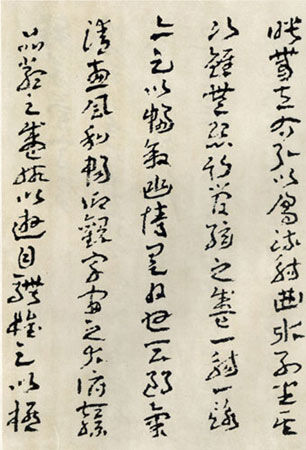 映帶左右引以為流觴曲水列坐其
次雖無絲竹管弦之盛一觴一詠
亦足以暢敘幽情是日也天朗氣
清惠風和暢仰觀宇宙之大俯察
品類之盛所以遊目騁懷足以極